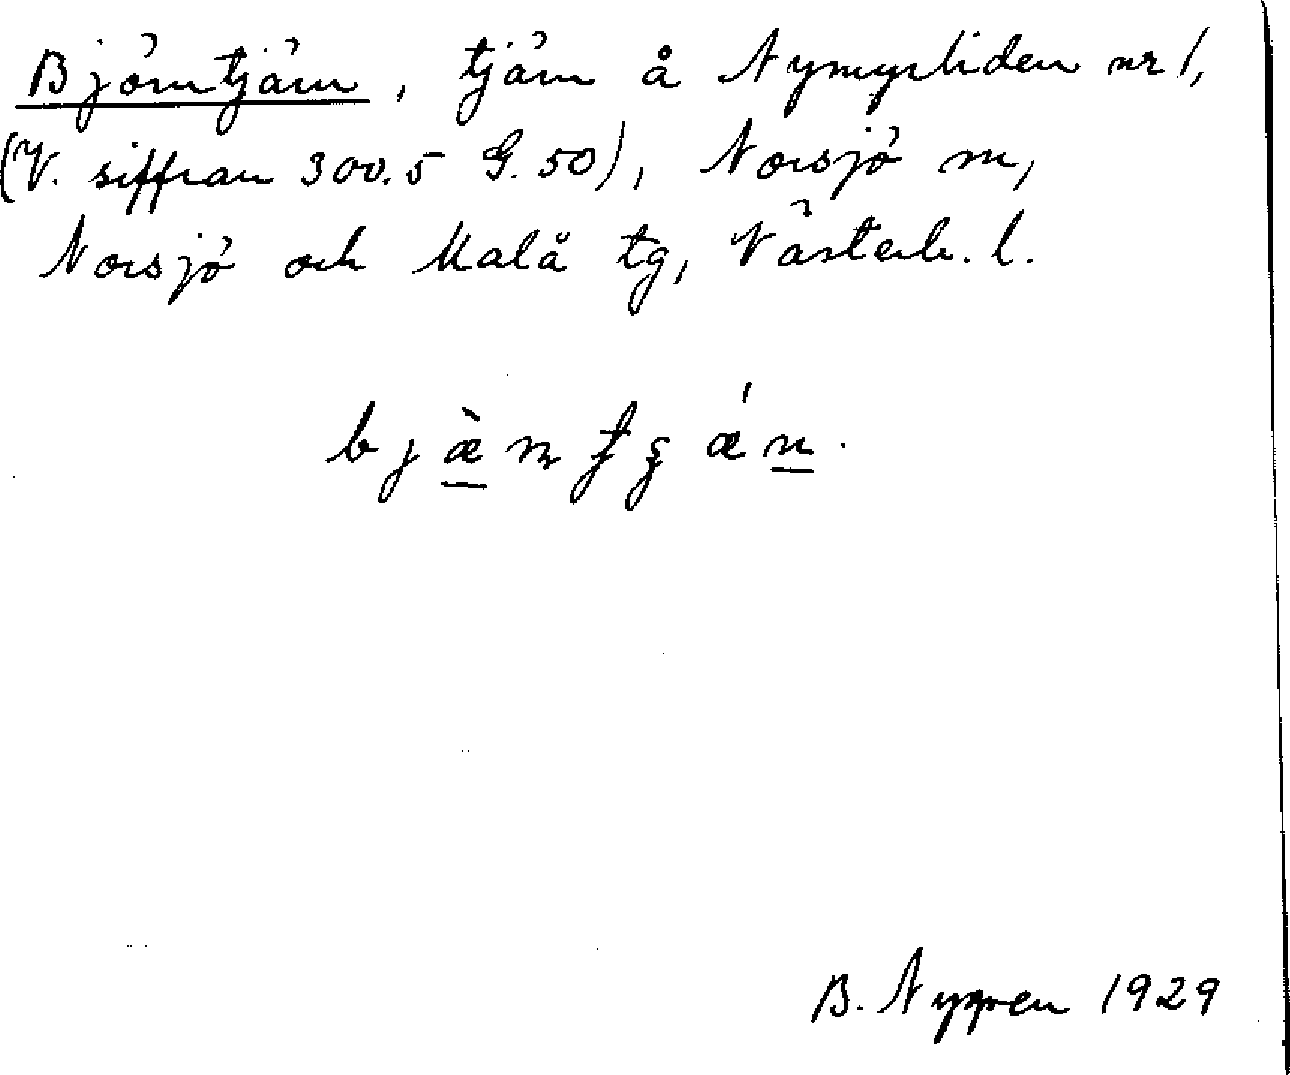 Björntjärn, tjärn å Nymyrliden nr 1,
(V. siffran 300.5 G. 50), Norsjö sn,
Norsjö och Malå tg, Västerb. l.
B. Nygren 1929